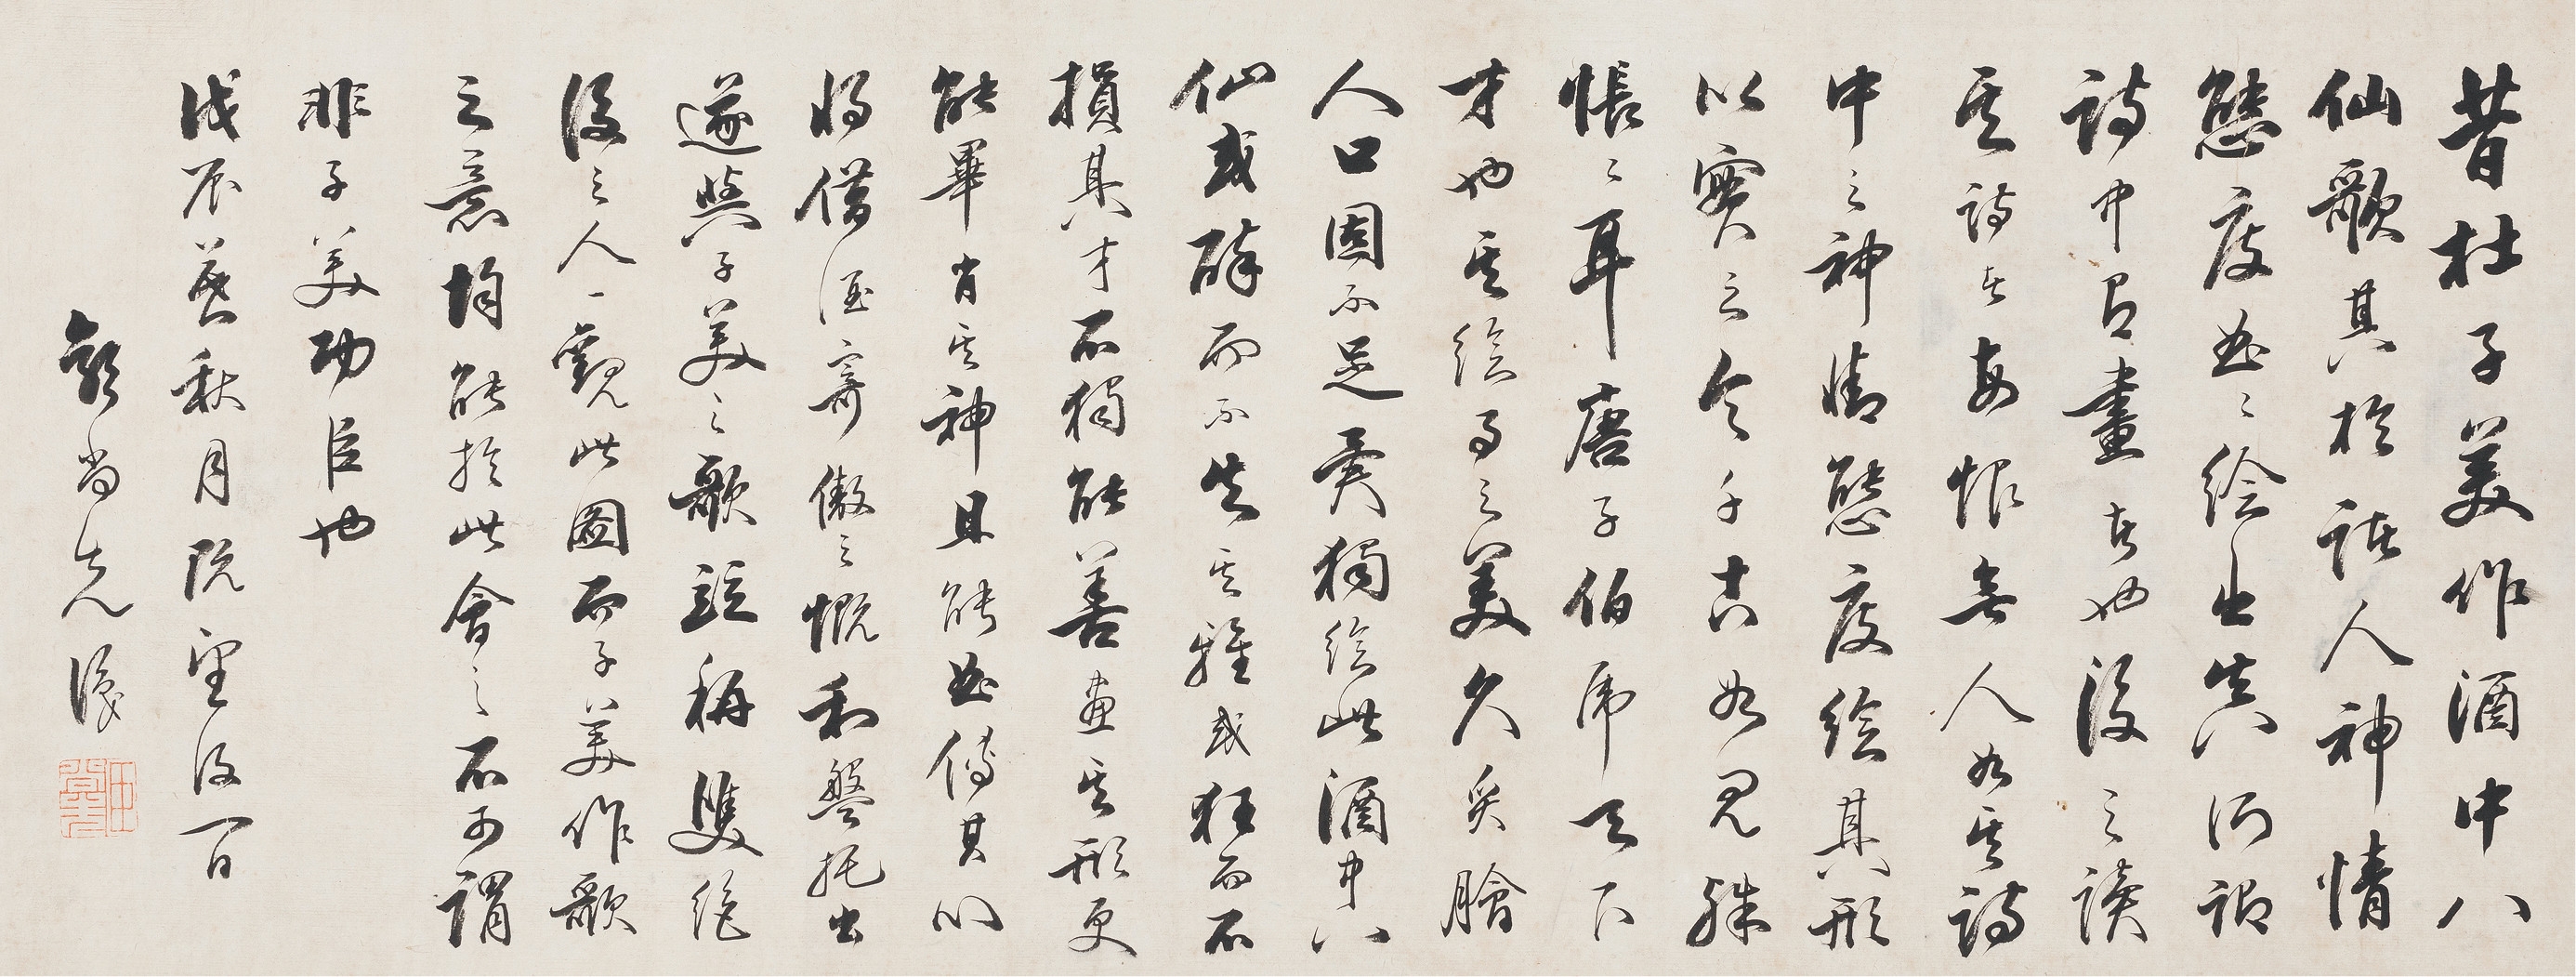 昔杜子美作酒中八
仙歌其於諸人神情
態度一一繪出真所謂
詩中有畫者也後之讀
其詩者每恨無人如其詩
中之神情態度繪其形
以實之令千古如見殊
悵悵耳唐子伯虎天下
才也其繪事之美久矣膾
人口固不足異獨繪此酒中八
仙或醉而不失其雅或狂而不
損其才不獨能善畫其形更
能畢肖其神且能並傳其心
將借酒寄傲之慨和盤托出
遂與子美之歌並稱雙絕
後之人一觀此圖而子美作歌
之意均能於此會之不可謂
非子美功臣也
戊辰暮秋月既望後一日
尚先